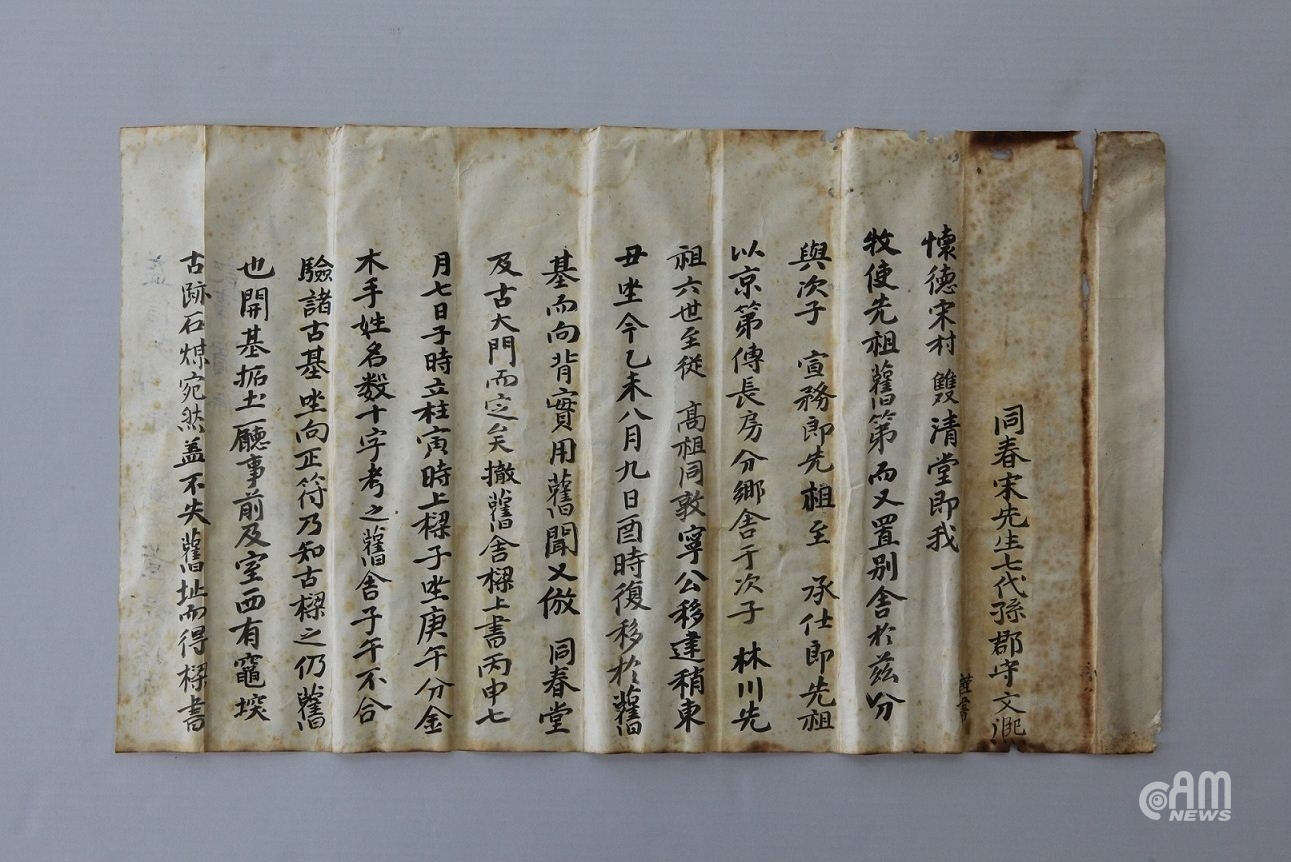 同春宋先生七代孫郡守文
謹書
懷德宋村 雙清堂即我
牧使先祖舊第而又置別舍於茲分
與次子 宣務郎先祖至 承仕郎先祖
以京第傳長房分鄉舍于次子 林川先
祖六世至從 高祖同敦寧公移建稍東
丑坐今乙未八月九日酉時復移於舊
基而向背實用舊聞又倣 同春堂
及古大門而定矣撤舊舍樑上書丙申七
月七日子時立柱寅時上樑子坐庚午分金
木手姓名数十字考之舊舍子午不合
驗諸古基坐向正符乃知古樑之仍舊
也開基拓土廳事前及室西有竈堗
古跡石㷡宛然盖不失舊址而得樑書
CAM
NEWS